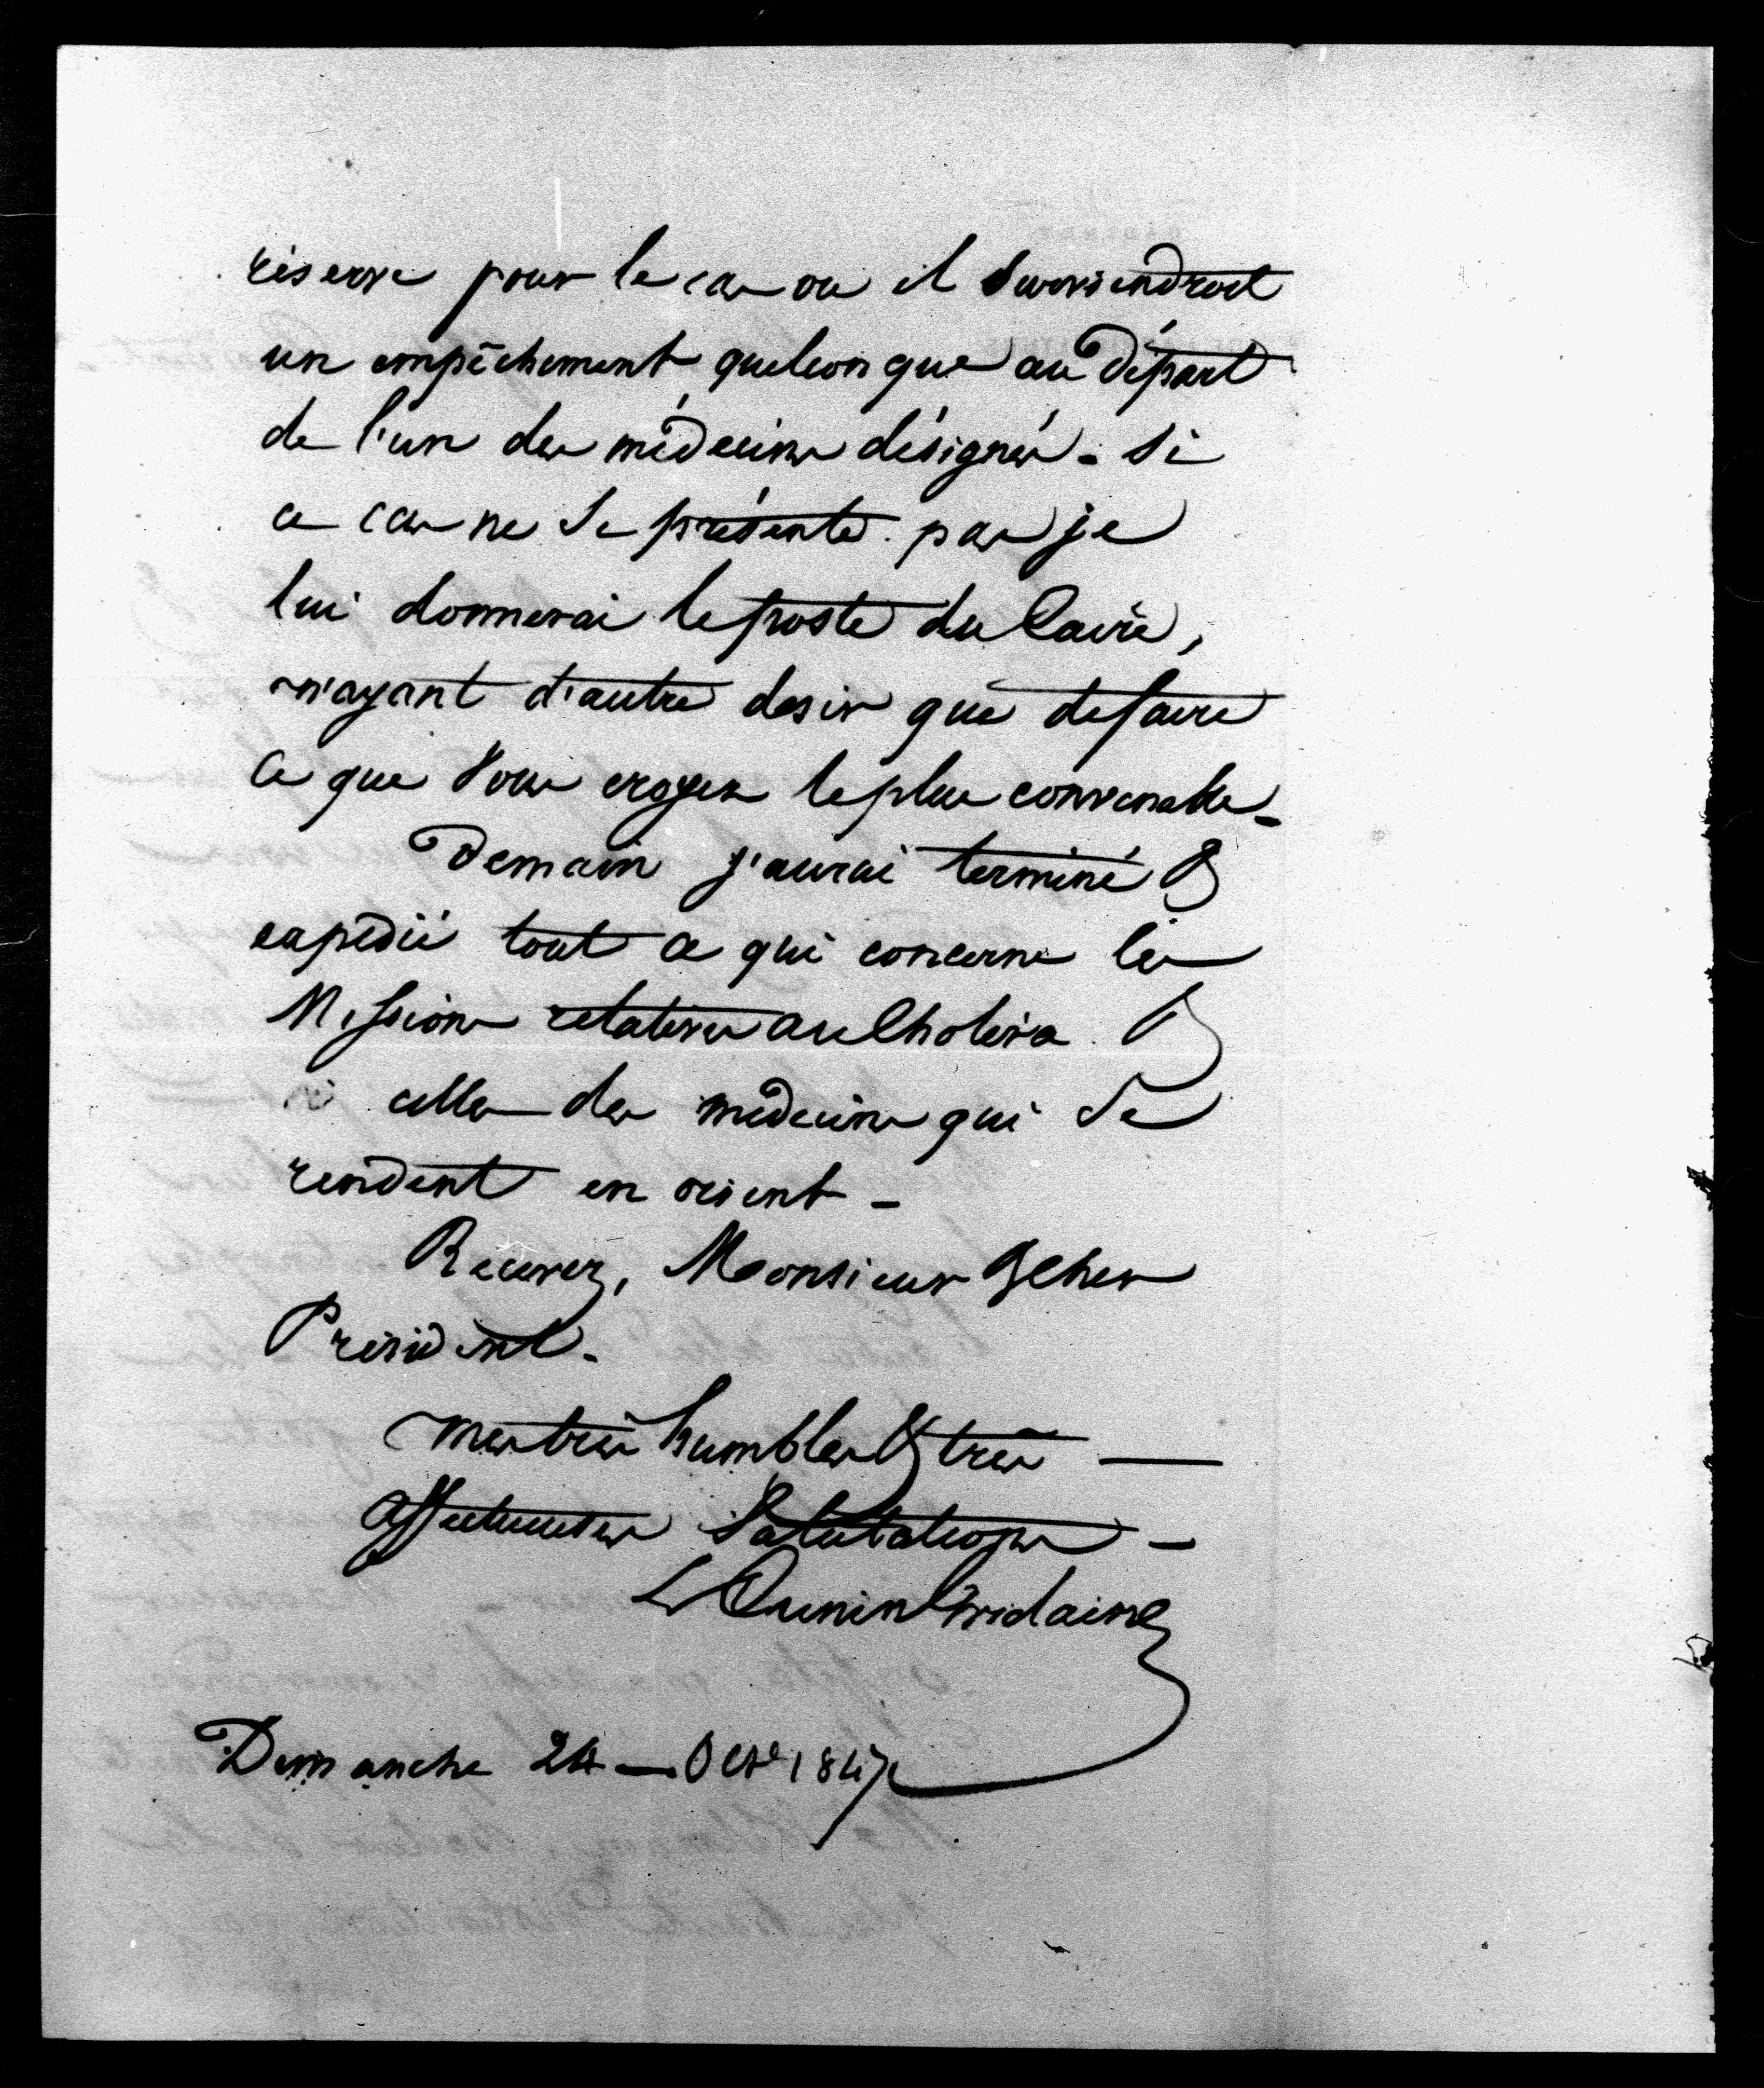 réserve pour le cas ou il surviendroit
un empêchement quelconque au départ
de l'un des médecins désignés. Si
ce cas ne se présente pas je
lui donnerai le poste du Caire,
n'ayant d'autre desir que de faire
ce que vous croyez le plus convenable.
Demain j'aurai terminé &
expédié tout ce qui concerne les
Missions relatives au Choléra &
celles des médecins qui se
rendent en orient.
Recevez, Monsieur & cher
Président.
mes très humbles & très
affectueuses Salutations.
L Cunin Gridaine
Dimanche 24 Obre 1847